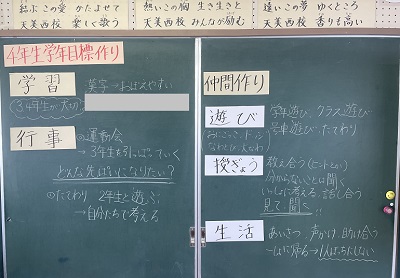 結ぶこの愛 かたよせて
天美西校 楽しく歌う
熱いこの胸 生き生きと
天美西校 みんなが励む
遠いこの夢 ゆくところ
天美西校 香りも高い
4年生学年目標作り
学習
漢字→おぼえやすい
(3,4年生が大切)
行事
①運動会
→3年生を引っぱっていく
どんな先ぱいになりたい?
②たてわり 2年生と遊ぶ
→自分たちで考える
仲間作り
遊び
学年遊び、クラス遊び
号車遊び、たてわり
なわとび
授ぎょう
教え合う(ヒントという)
分からないことは聞く
いっしょに考える、話し合う
見て聞く
生活
あいさつ、声かけ、助け合う
一緒に帰る→1人ぼっちにしない